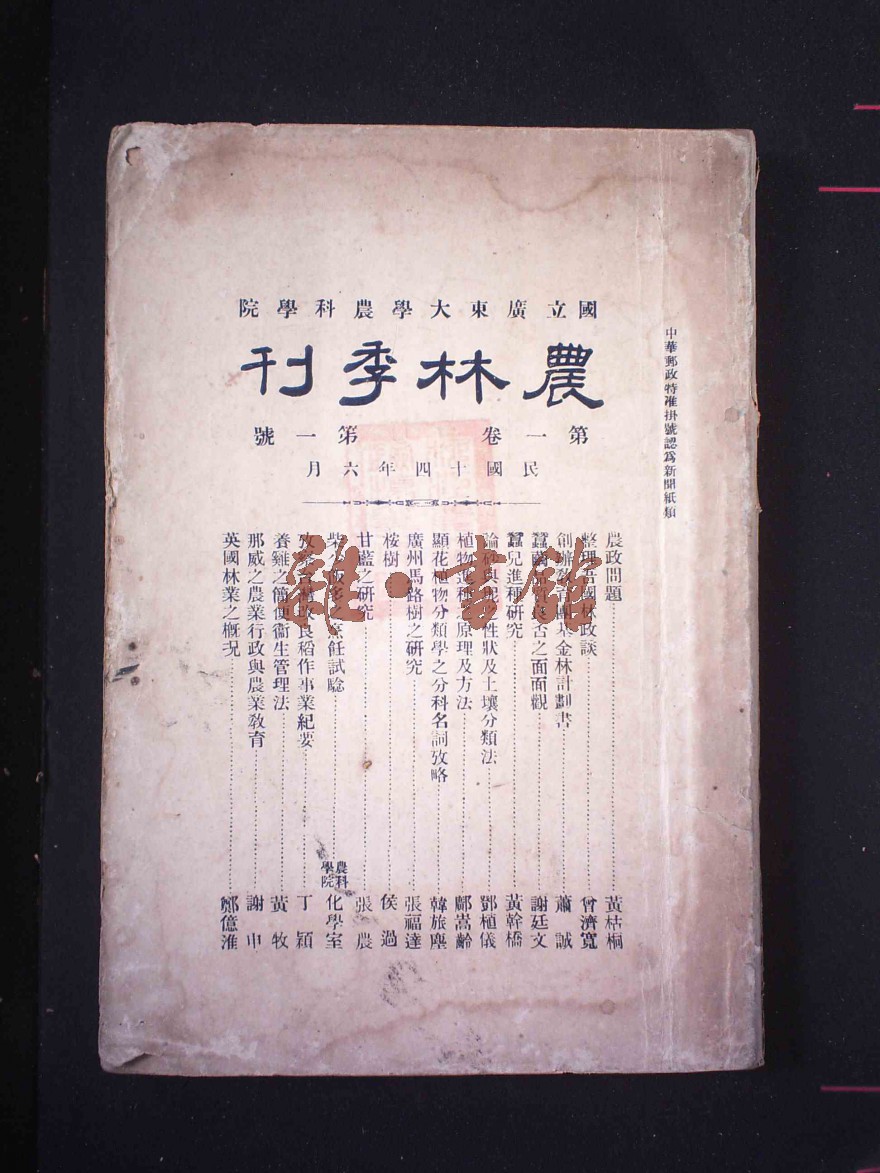 國立廣東大學農科學院
農林季刊
第一卷 第一號
民國十四年六月
中華郵政特准掛號認爲新聞紙類
農政問題……黃枯桐
整理吾國林政談……曾濟寬
創辦教育團基金林計劃書……蕭誠
蠶繭否之面面觀……謝廷文
蠶兒進種研究……黃幹橋
論與之性狀及土壤分類法……鄧植儀
植物進種之原理及方法……鄺嵩齡
顯花植物分類學之分科名詞攷略……韓旅塵
廣州馬路樹之研究……張福達
桉樹……侯過
甘藍之研究……張農
柴烹飪試驗……農科學院化學室
攷改良稻作事業紀要……丁穎
養雞之簡便衞生管理法……黃牧
那威之農業行政與農業教育……謝申
英國林業之槪况……鄭億淮
雜·書館